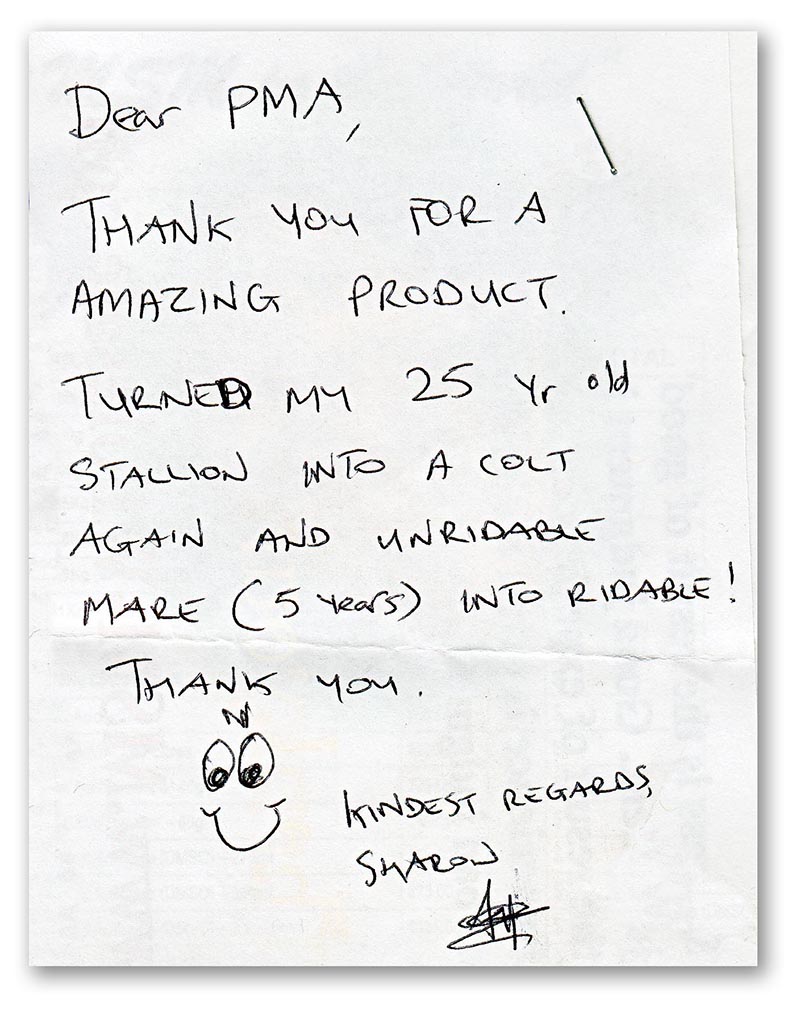 Dear PMA,
THANK YOU FOR A
AMAZING PRODUCT.
TURNED MY 25 Yr old
STALLION INTO A COLT
AGAIN AND UNRIDABLE
MARE (5 Years) INTO RIDABLE!
THANK YOU.
KINDEST REGARDS,
SHARON